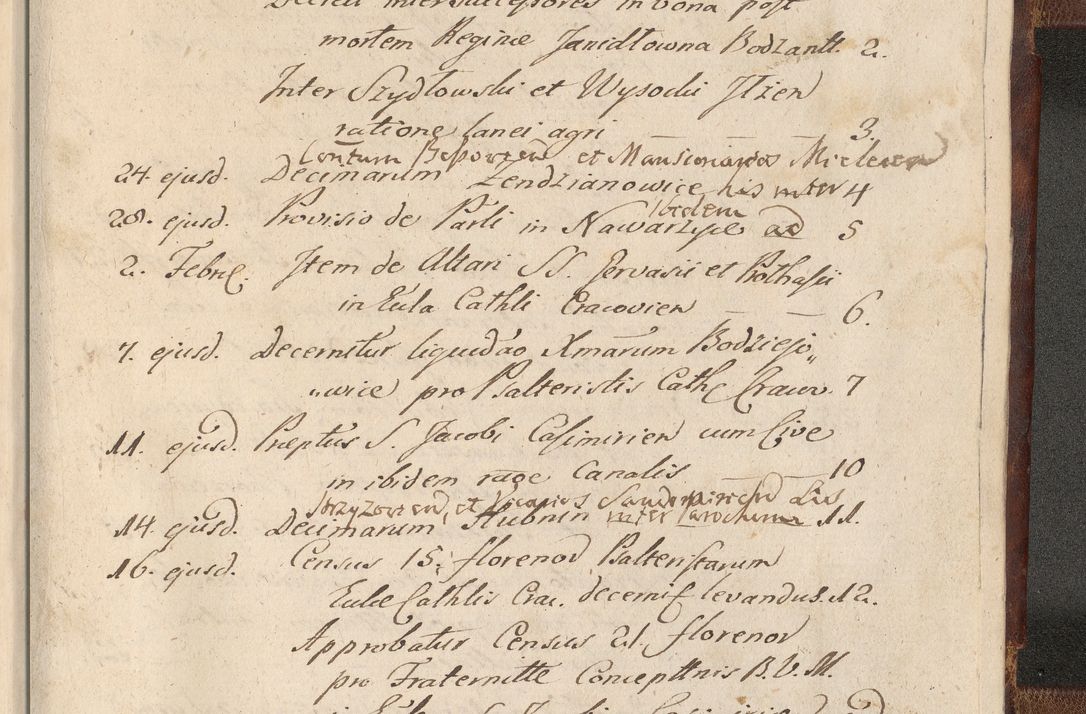 Decreti inter successores in bona post
mortem Reginæ Janidłowna Bodzantt. 2.
Inter Szydłowski et Wysocki Itzen
ratione lanei agri 3.
et Mansionarios
24. ejusd. Decimarum Zendzianowice lis inter 4
ibidem
28. ejusd. Provisio de Parli in Nawarzyce ad 5
2. Febr. Item de Altari SS. Gervasii et Prothasii
in Eccla Cathli Cracovien 6.
7. ejusd. Decernitur liquidao Xmarum Bodziejo„
„wice pro Psalteristis Cath Cracov. 7
11. ejusd. Præptus S. Jacobi Casimirien cum Cive
in ibidem raoe Canalis 10
et Vicarios Sandomirien Lis
14. ejusd. Decimarum inter 11.
16. ejusd. Census 15. florenor Psalteristarum
Eccle Cathlis Crac. decernit levandus. 12.
Approbatur Census 21. florenor
pro Fraternitte Concepttnis B. V. M.